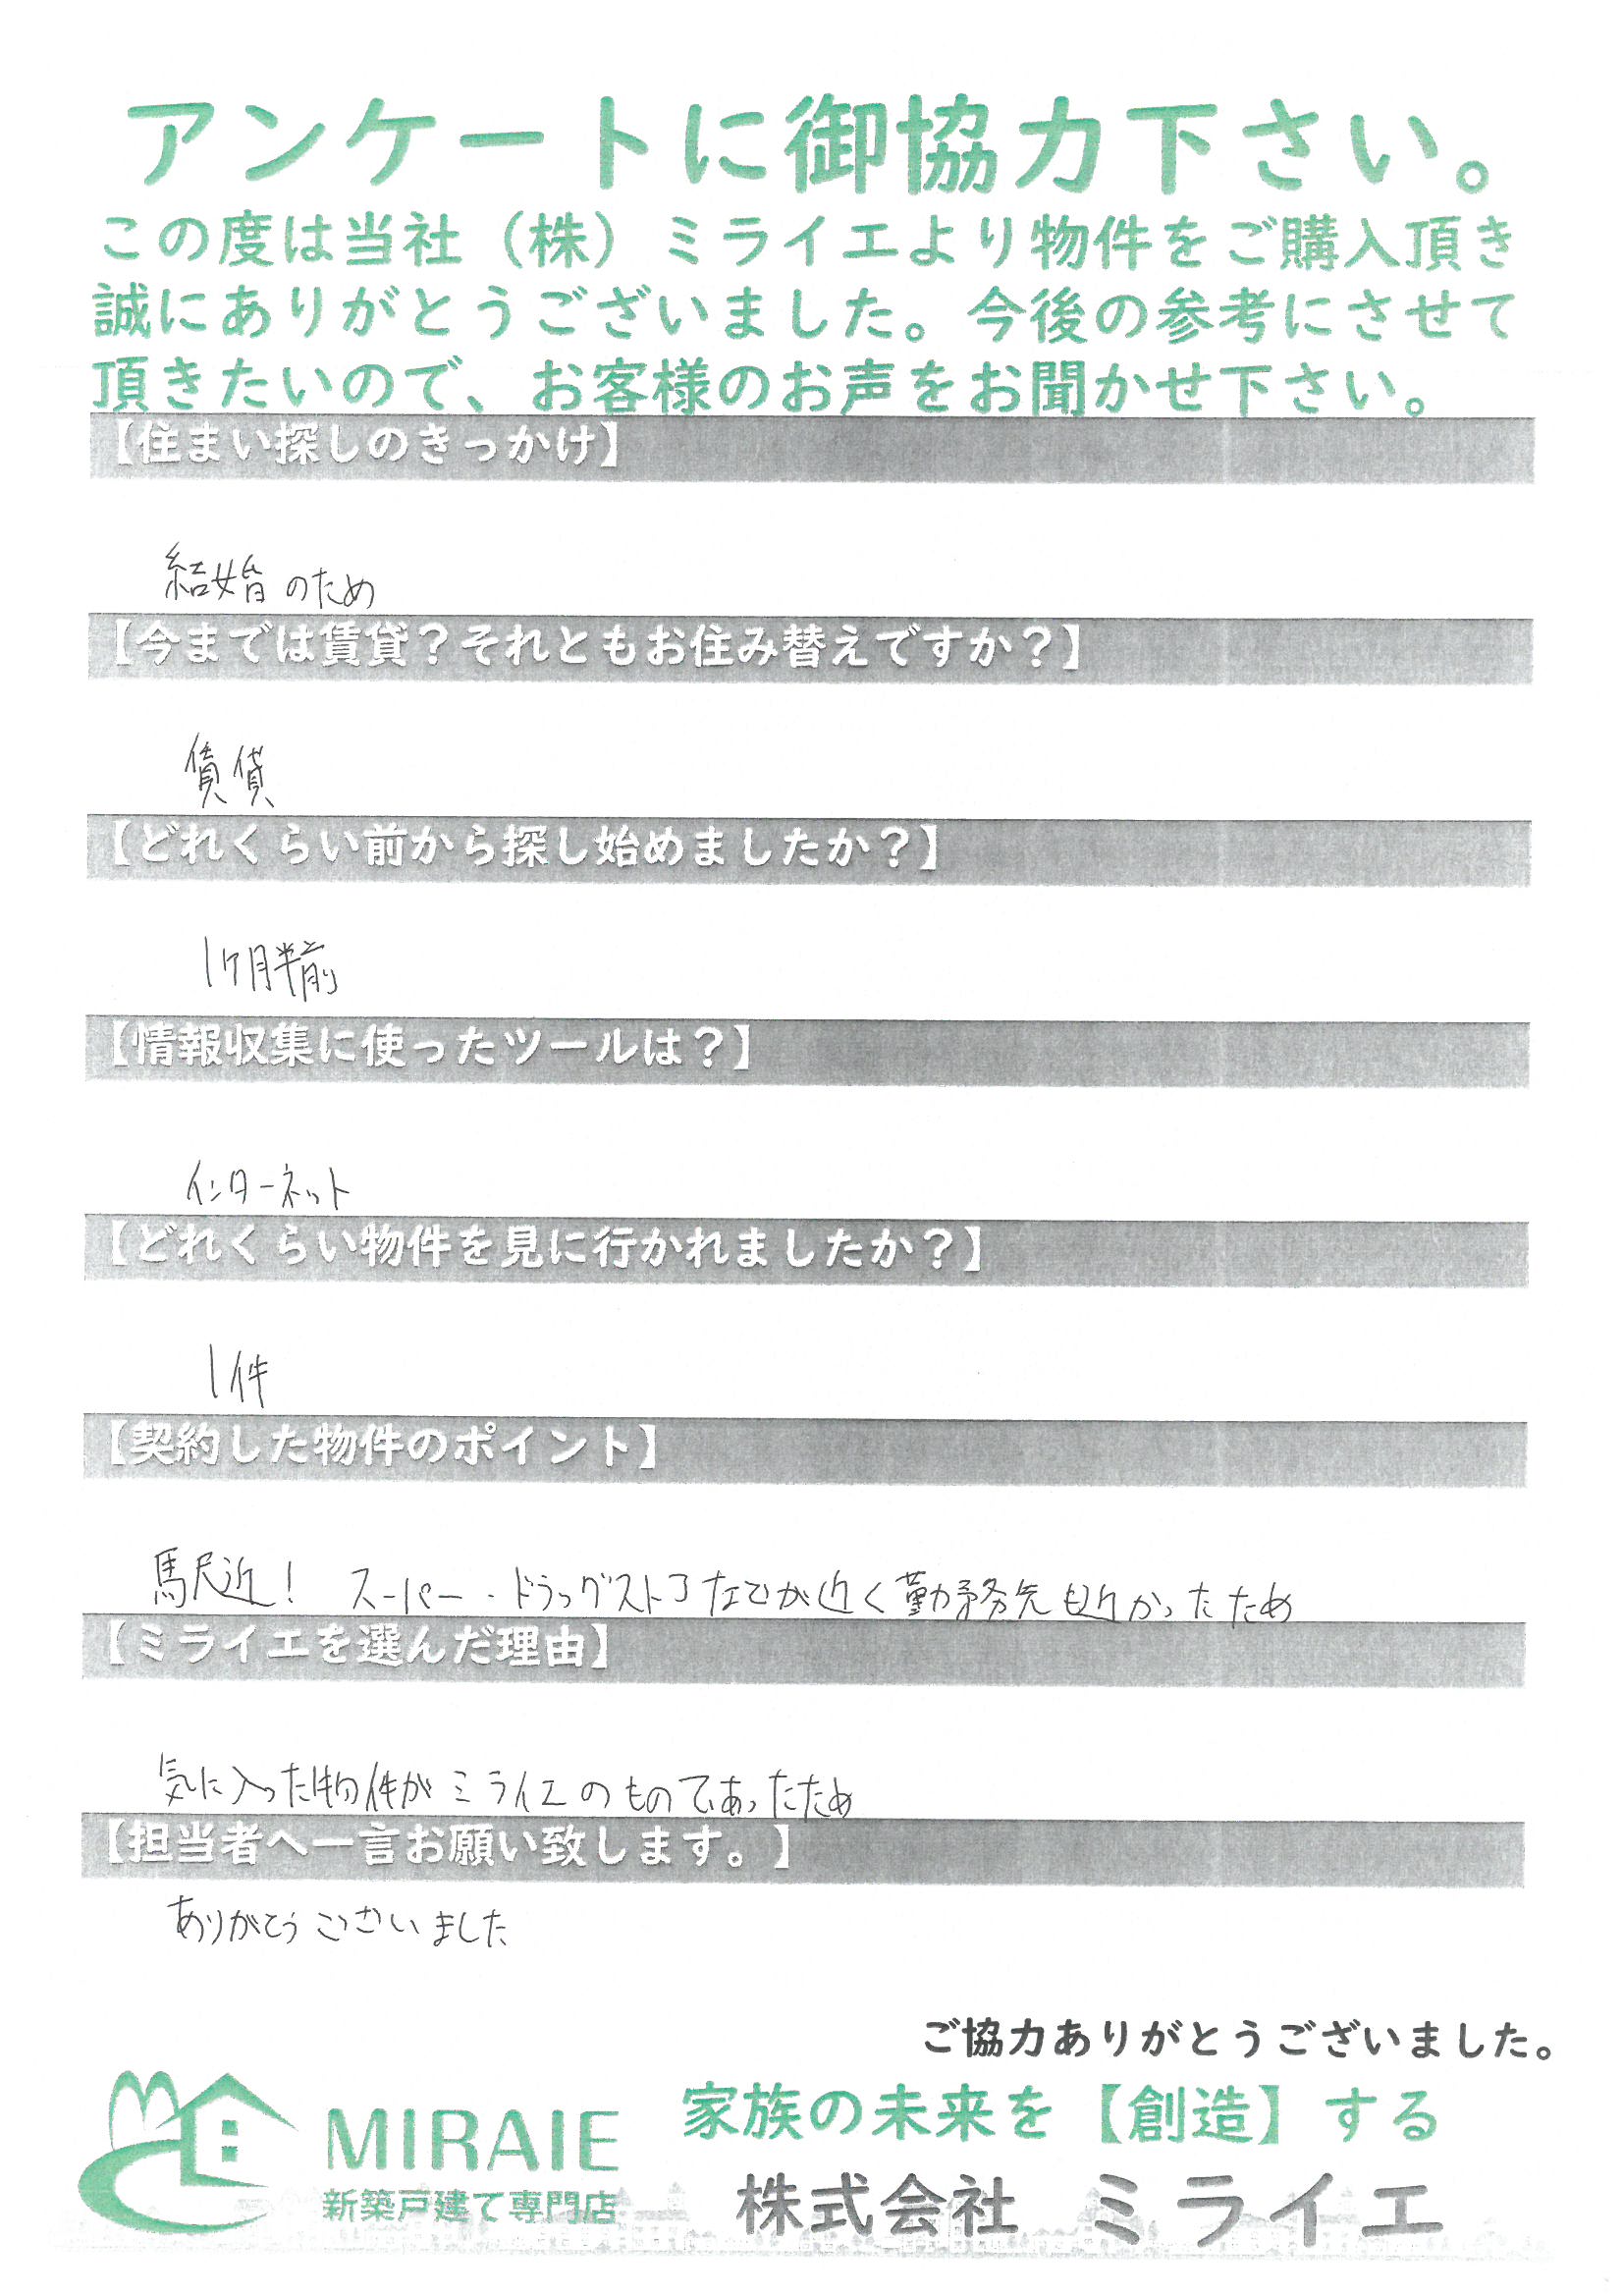 アンケートに御協力下さい。
この度は当社（株）ミライエより物件をご購入頂き
誠にありがとうございました。今後の参考にさせて
頂きたいので、お客様のお声をお聞かせ下さい。
【住まい探しのきっかけ】
結婚のため
【今までは賃貸？それともお住み替えですか？】
賃貸
【どれくらい前から探し始めましたか？】
1ヶ月半前
【情報収集に使ったツールは？】
インターネット
【どれくらい物件を見に行かれましたか？】
1件
【契約した物件のポイント】
駅近！ スーパー・ドラッグストアなどが近く勤務先も近かったため
【ミライエを選んだ理由】
気に入った物件がミライエのものであったため
【担当者へ一言お願い致します。】
ありがとうございました
ご協力ありがとうございました。
MIRAIE
新築戸建て専門店
家族の未来を【創造】する
株式会社 ミライエ